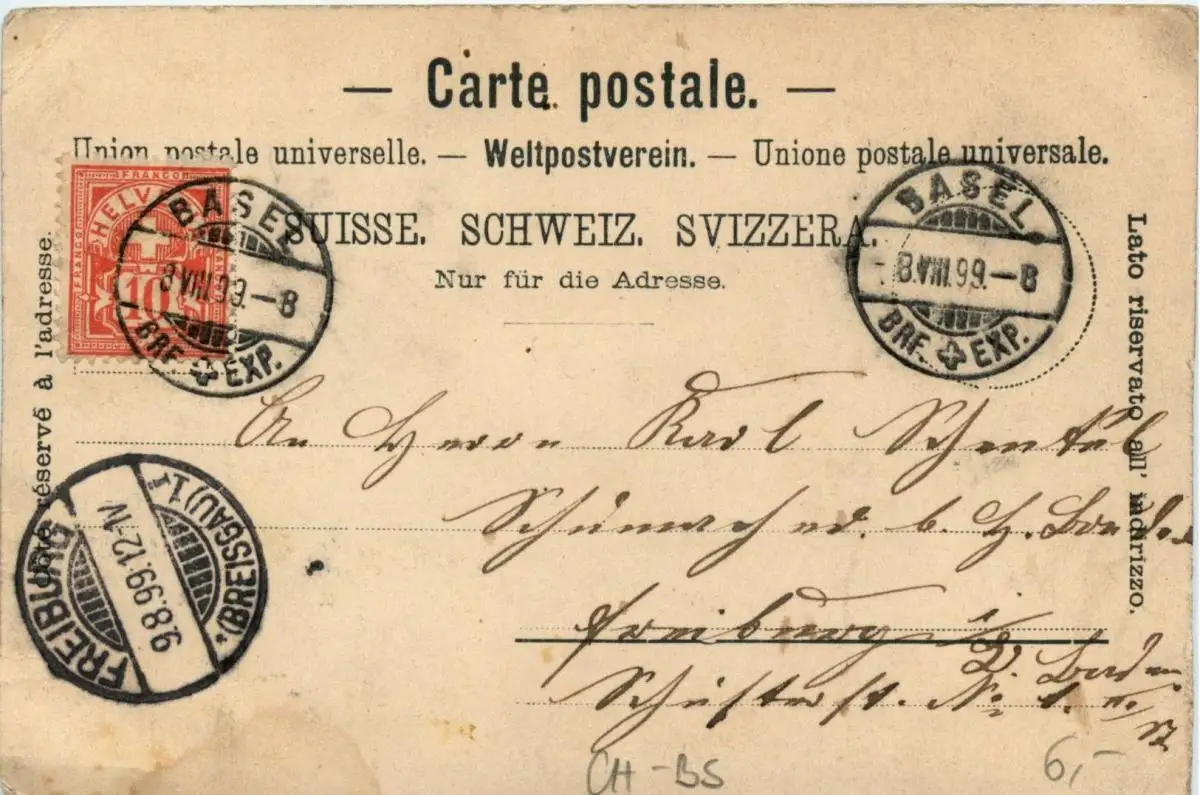 — Carte postale. —
Union postale universelle. — Weltpostverein. — Unione postale universale.
SUISSE. SCHWEIZ. SVIZZERA.
Nur für die Adresse.
Côté réservé à l'adresse.
Lato riservato all' indirizzo.
FRANCO
HELV
FRANCO
FRANCO
10
BASEL
8.VIII.99.–8
BRF. EXP.
BASEL
8.VIII.99.–8
BRF. EXP.
FREIBURG
9.8.99.12-1N
*(BREISGAU)1
An Herrn Karl
Schumacher b. H.
Freiburg i/
Baden
Schusterst. No 1.
CH-BS
6,-